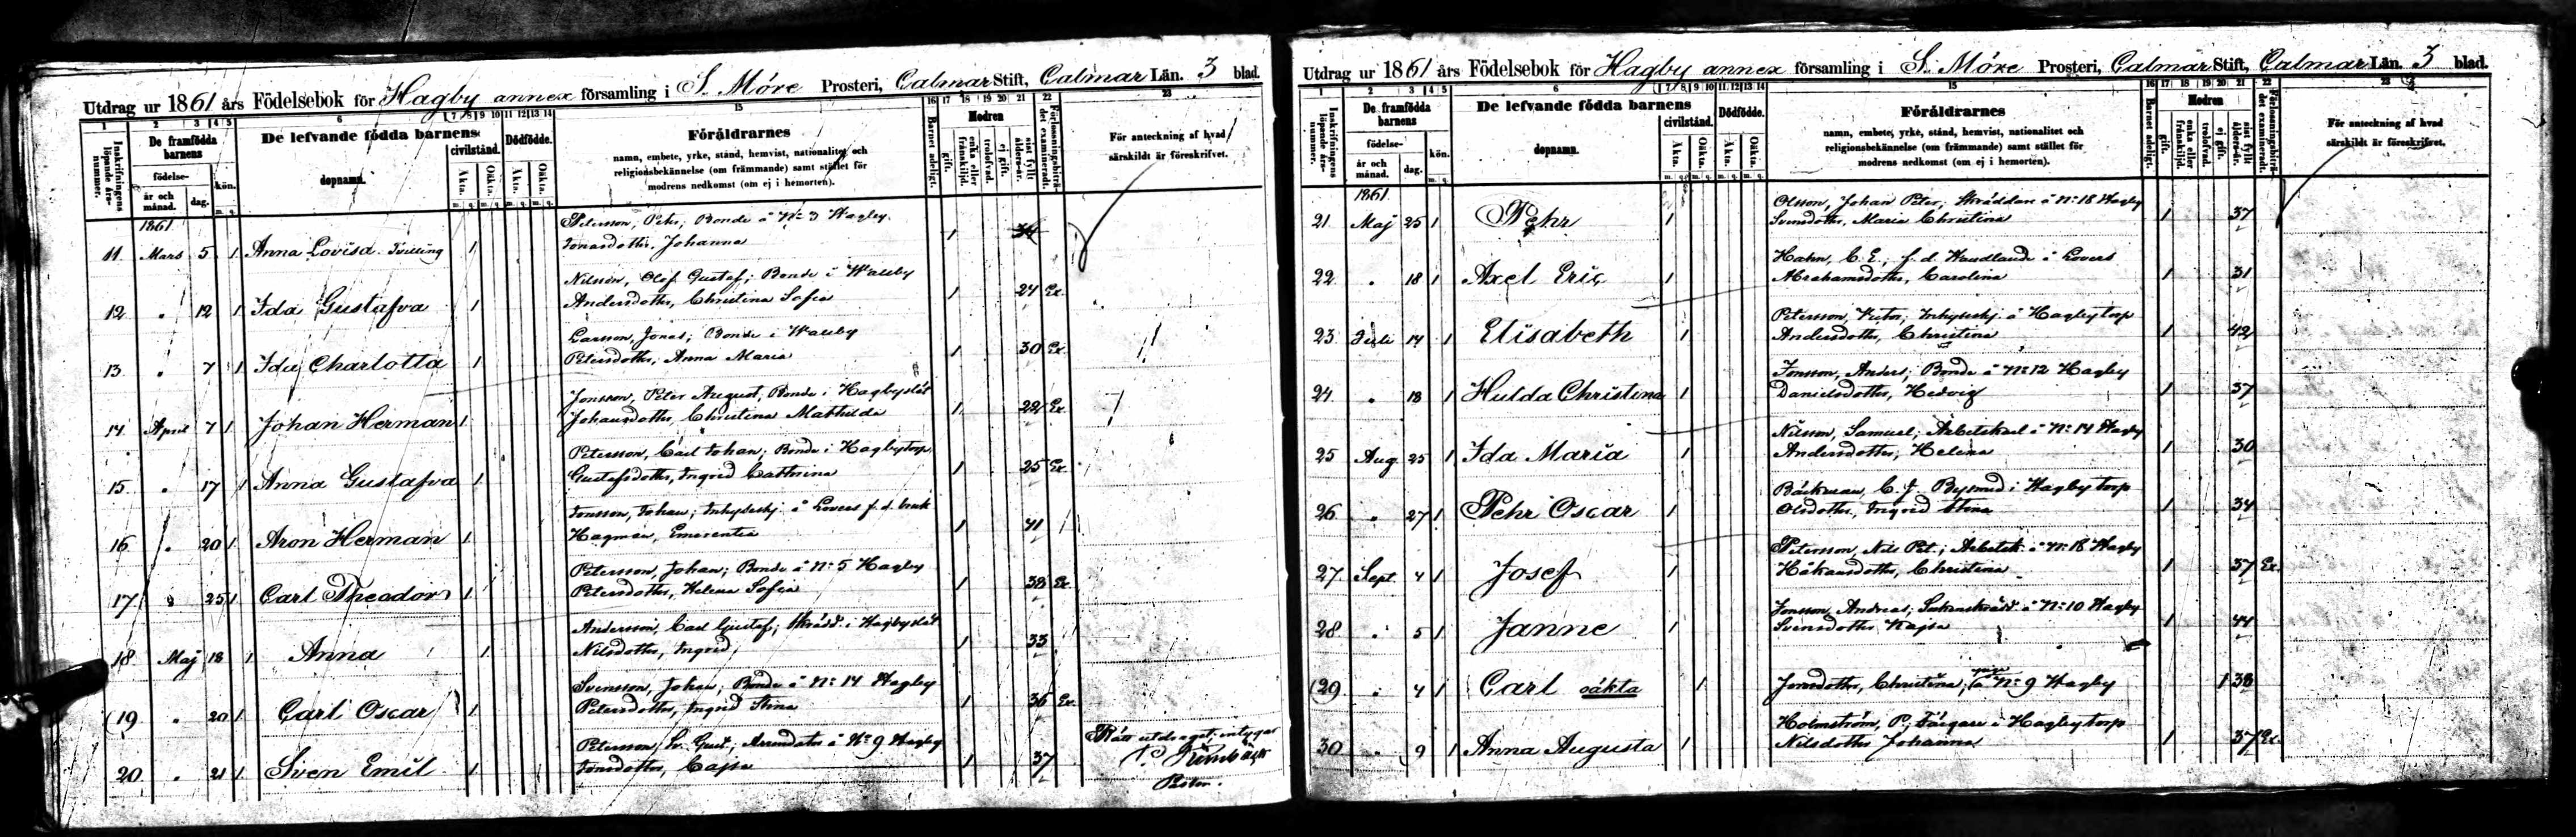 Utdrag ur 1861 års Födelsebok för Hagby annex församling i S. Möre Prosteri, Calmar Stift, Calmar Län. 3 blad.
1 2 3 4 5 6 7 8 9 10 11 12 13 14 15 16 17 18 19 20 21 22 23
Inskrifningens löpande års-nummer.
De framfödda barnens
födelse-
år och månad.
dag.
kön.
m. q.
De lefvande födda barnens
dopnamn.
civilstånd.
Äkta.
Oäkta.
Dödfödde.
Äkta.
Oäkta.
Föräldrarnes
namn, embete, yrke, stånd, hemvist, nationalitet och
religionsbekännelse (om främmande) samt stället för
modrens nedkomst (om ej i hemorten).
Barnet adeligt.
Modren
gift.
enka eller frånskiljd.
trolofvad.
ej gift.
sist fyllt ålders-år.
Förlossningsbiträ-det examineradt.
För anteckning af hvad
särskildt är föreskrifvet.
1861
Petersson, Pehr; Bonde å No 3 Hagby.
11 Mars 5 1 Anna Lovisa Tvilling 1 Jonasdotter, Johanna 1 34
Nilsson, Olof Gustaf; Bonde i Wassby
12 " 12 1 Ida Gustafva 1 Andersdotter, Christina Sofia 1 24 Ex.
Larsson, Jonas; Bonde i Wassby
13 " 7 1 Ida Charlotta 1 Petersdotter, Anna Maria 1 30 Ex.
Jonsson, Peter August, Bonde i Hagbyslät
14 April 7 1 Johan Herman 1 Johansdotter, Christina Mathilda 1 22 Ex.
Petersson, Carl Johan; Bonde i Hagbytorp
15 " 17 1 Anna Gustafva 1 Gustafsdotter, Ingrid Cathrina 1 25 Ex.
Jonsson, Johan; Inhyseshj. å Lovers f.d. bruk
16 " 20 1 Aron Herman 1 Hagman, Emerentia 1 41
Petersson, Johan; Bonde å No 5 Hagby
17 " 25 1 Carl Theodor 1 Petersdotter, Helena Sofia 1 38 Ex.
Andersson, Carl Gustaf; Skrädd. i Hagbyslät
18 Maj 18 1 Anna 1 Nilsdotter, Ingrid 1 33
Svensson, Johan; Bonde å No 14 Hagby
19 " 20 1 Carl Oscar 1 Petersdotter, Ingrid Stina 1 36 Ex.
Petersson, Sv. Gust; Arrendator å No 9 Hagby
20 " 21 1 Sven Emil 1 Jonsdotter, Cajsa 1 37
Rätt utdraget, intygar
Pastor.
Utdrag ur 1861 års Födelsebok för Hagby annex församling i S. Möre Prosteri, Calmar Stift, Calmar Län. 3 blad.
1 2 3 4 5 6 7 8 9 10 11 12 13 14 15 16 17 18 19 20 21 22 23
Inskrifningens löpande års-nummer.
De framfödda barnens
födelse-
år och månad.
dag.
kön.
m. q.
De lefvande födda barnens
dopnamn.
civilstånd.
Äkta.
Oäkta.
Dödfödde.
Äkta.
Oäkta.
Föräldrarnes
namn, embete, yrke, stånd, hemvist, nationalitet och
religionsbekännelse (om främmande) samt stället för
modrens nedkomst (om ej i hemorten).
Barnet adeligt.
Modren
gift.
enka eller frånskiljd.
trolofvad.
ej gift.
sist fyllt ålders-år.
Förlossningsbiträ-det examineradt.
För anteckning af hvad
särskildt är föreskrifvet.
1861
Olsson, Johan Peter; Skräddare å No 18 Hagby
21 Maj 25 1 Pehr 1 Svensdotter, Maria Christina 1 37
Hahn, C. E.; f.d. i Lovers
22 " 18 1 Axel Eric 1 Abrahamsdotter, Carolina 1 31
Petersson, Victor; Inhyseshj. å Hagbytorp
23 Juli 14 1 Elisabeth 1 Andersdotter, Christina 1 42
Jonsson, Anders; Bonde å No 12 Hagby
24 " 18 1 Hulda Christina 1 Danielsdotter, Hedvig 1 37
Nilsson, Samuel; Arbetskarl å No 14 Hagby
25 Aug. 25 1 Ida Maria 1 Andersdotter, Helena 1 30
Bäckman, C. J. Bysmed i Hagbytorp
26 " 27 1 Pehr Oscar 1 Olsdotter, Ingrid Stina 1 34
Petersson, Nils Pet.; Arbetsk. å No 18 Hagby
27 Sept. 4 1 Josef 1 Håkansdotter, Christina 1 37 Ex.
Jonsson, Andreas; å No 10 Hagby
28 " 5 1 Janne 1 Svensdotter Kajsa 1 44
29 " 4 1 Carl oäkta 1 Jonsdotter, Christina, piga å No 9 Hagby 1 38
Holmström, P. Färgare i Hagbytorp
30 " 9 1 Anna Augusta 1 Nilsdotter Johanna 1 37 Ex.